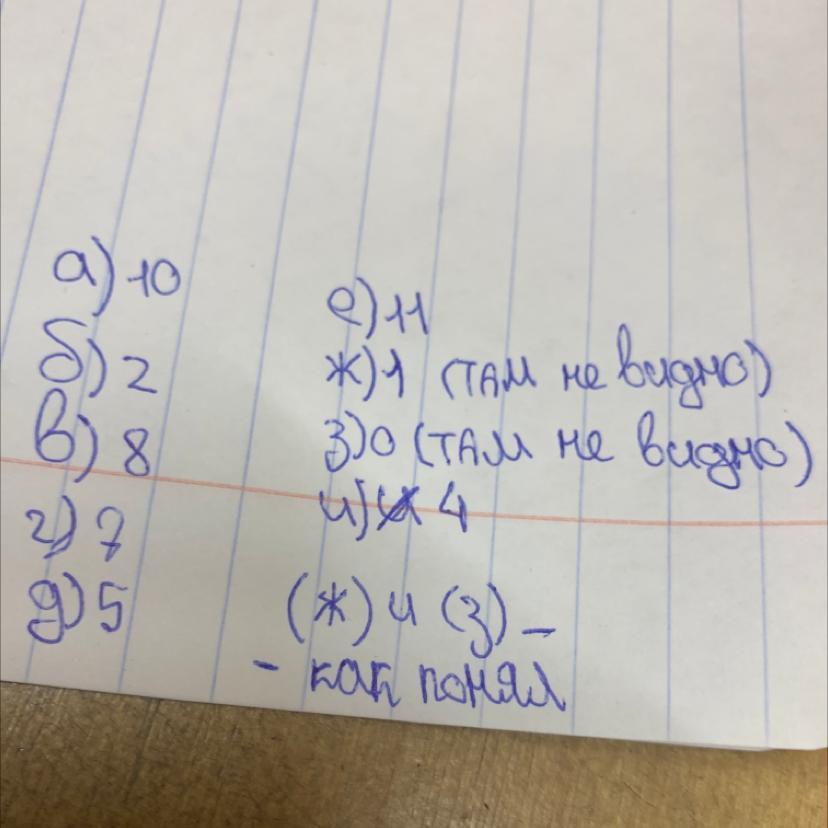 а) 10
б) 2
в) 8
г) 7
д) 5
е) 11
ж) 1 (там не видно)
з) 0 (там не видно)
и) 4
(ж) и (з) –
- как понял